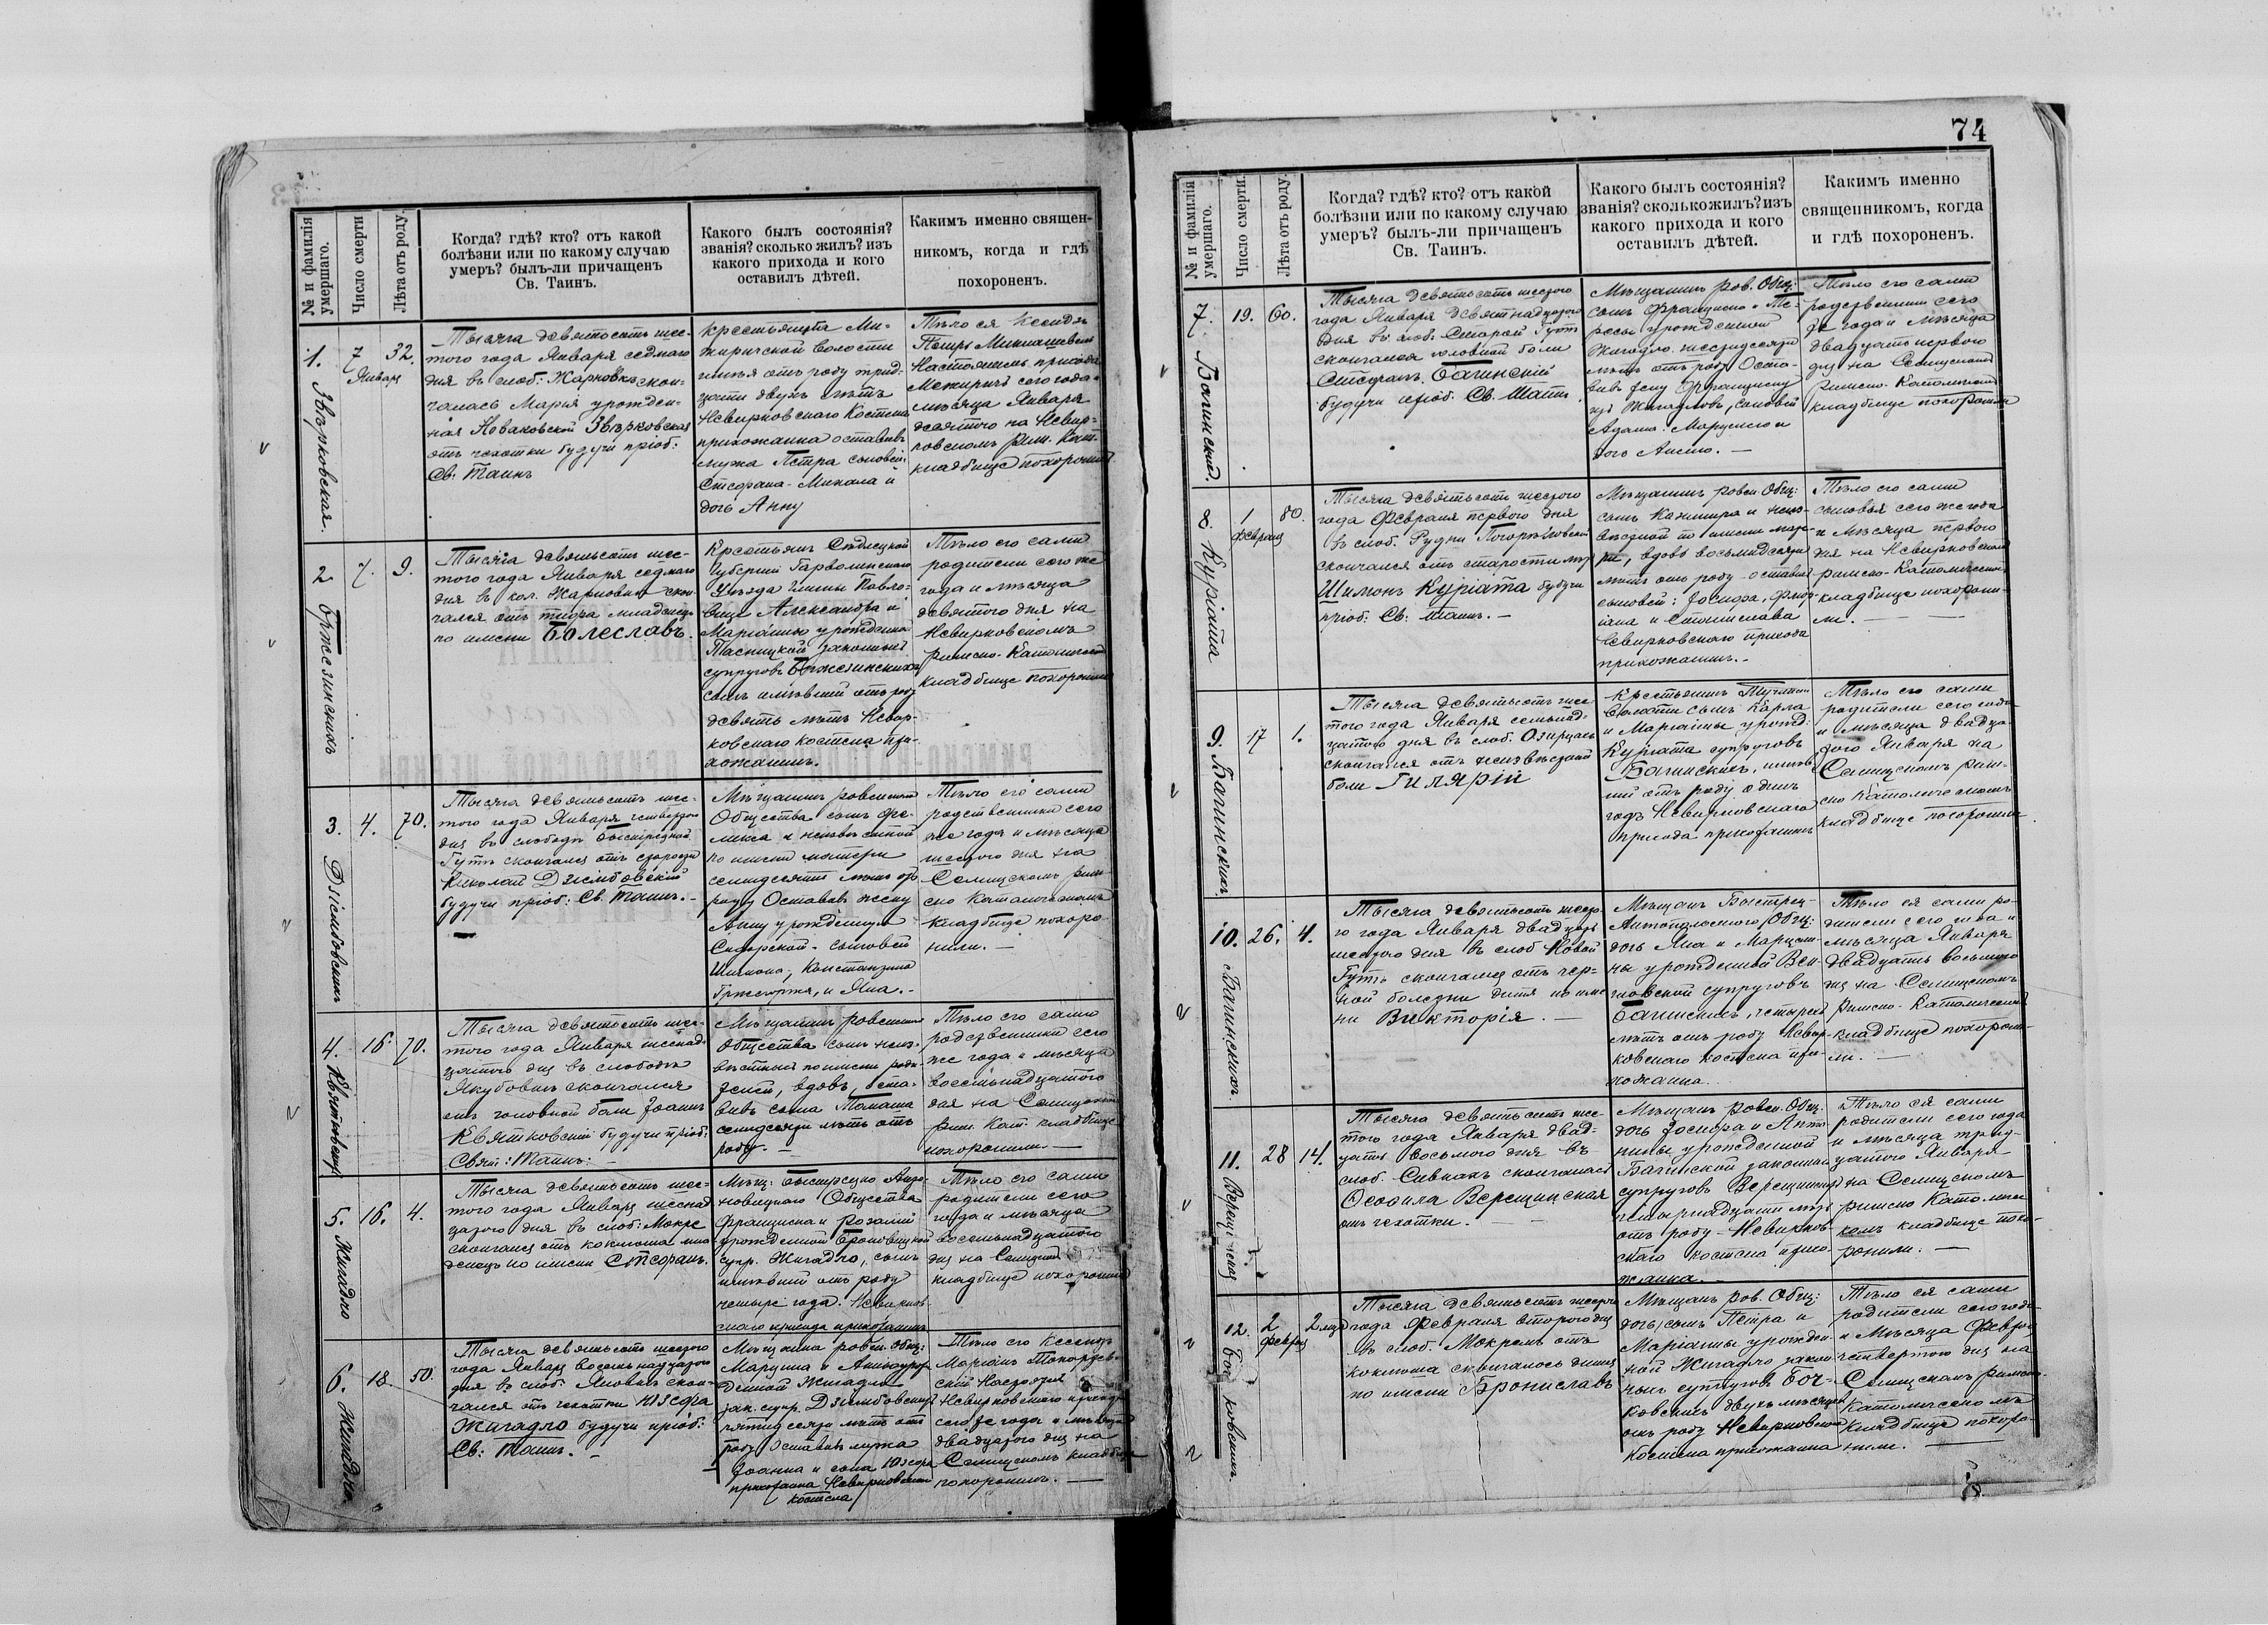 74
№ и фамилія умершаго.
Число смерти
Лѣта отъ роду.
Когда? гдѣ? кто? отъ какой
болѣзни или по какому случаю
умеръ? былъ-ли причащенъ
Св. Таинъ.
Какого былъ состоянія?
званія? сколько жилъ? изъ
какого прихода и кого
оставилъ дѣтей.
Какимъ именно священ-
никомъ, когда и гдѣ
похороненъ.
1. Звѣрковская.
7 Января
32.
Тысяча девятьсотъ шес-
того года Января седмаго
дня въ слоб: Жарновка скон-
чалась Марія урожден-
ная Новаковской Звѣрковская
отъ чахотки будучи пріоб:
Св: Таинъ
крестьянка Ме-
жиричской волости
отъ роду трид-
цати двухъ лѣтъ
Невирковскаго Костела
прихожанка оставивъ
мужа Петра сыновей:
Стефана - Михала и
дочь Анну
Тѣло ея Ксендзъ
Петръ Микашевскій
Настоятель прихода
Межиричъ сего года и
мѣсяца Января
девятого на Невир-
ковскомъ рим. Кат.
кладбище похоронилъ
2 Бржезинскихъ
7.
9.
Тысяча девятьсотъ шес-
того года Января седмаго
дня въ кол. Жарновка скон-
чался отъ тифа младенецъ
по имени Болеславъ.
Крестьянъ Сѣдлецкой
Губерніи Гарволинскаго
Уѣзда Гмины Павло-
вице Александра и
Маріанны урожденна
законныхъ
супруговъ Бржезинскихъ
сынъ имѣвшій отъ роду
девять лѣтъ Невир-
ковскаго костела при-
хожанинъ.
Тѣло его сами
родители сего же
года и мѣсяца
девятого дня на
Невирковскомъ
римско-Католическомъ
кладбище похоронили
3. Дзіембовскихъ
4.
70.
Тысяча девятьсотъ шес-
того года Января четвертого
дня въ слободѣ
Гутѣ скончался отъ старости
Николай Дзіембовскій
будучи пріоб: Св. Таинъ. -
Мѣщанинъ ровенскаго
Общества сынъ Фе-
ликса и неизвѣстной
по имени матери
семидесяти лѣтъ отъ
роду Оставивъ жену
Анну урожденную
Сидорской - сыновей
Шимона, Константина
Гржегоржа, и Яна. -
Тѣло его сами
родственники сего
же года и мѣсяца
шестого дня на
Селищскомъ рим-
ско Католическомъ
кладбище похоро-
нили. -
4. Квятковскій
16.
70.
Тысяча девятьсотъ шес-
того года Января шеснад-
цатого дня въ слободѣ
Якубовкѣ скончался
отъ головной боли Іоаннъ
Квятковскій будучи пріоб:
Свят: Таинъ: -
Мѣщанинъ ровенскаго
Общества сынъ неиз-
вѣстныхъ по имени роди-
телей, вдовъ, оста-
вивъ сына Томаша
семидесяти лѣтъ отъ
роду. -
Тѣло его сами
родственники сего
же года и мѣсяца
восемьнадцатого
дня на Селищскомъ
Рим. Кат. кладбище
похоронили. -
5. Жигадло
16.
4.
Тысяча девятьсотъ шес-
того года Января шеснад-
цатого дня въ слоб: Мокре
скончался отъ коклюша мла-
денецъ по имени Стефанъ.
Мѣщ: Быстрецко Анто-
новецкаго Общества
Францишка и Розаліи
урожденной Броновицкой
супр. Жигадло, сынъ
имѣвшій отъ роду
четыре года. Невирков-
скаго прихода прихожанинъ
Тѣло его сами
родители сего
года и мѣсяца
восемьнадцатого
дня на Селищскомъ
кладбище похоронили
6. Жигадло
18.
50.
Тысяча девятьсотъ шестого
года Января восемьнадцатого
дня въ слоб. Яновкѣ скон-
чался отъ чахотки Юзефа
Жигадло будучи пріоб:
Св: Таинъ. -
Мѣщанка ровен. Общ:
Марцина и уро-
жденной Жигадло
зак. супр. Дзіембовскихъ
пятидесяти лѣтъ отъ
роду Оставивъ мужа
Іоанна и сына Юзефа
прихожанка Невирковскаго
костела
Тѣло его Ксендзъ
Маріанъ Токаржев-
скій Настоятель
Невирковскаго прихода
сего же года и мѣсяца
двадцатого дня на
Селищскомъ кладбище
похоронилъ. -
№ и фамилія умершаго.
Число смерти.
Лѣта отъ роду.
Когда? гдѣ? кто? отъ какой
болѣзни или по какому случаю
умеръ? былъ-ли причащенъ
Св. Таинъ.
Какого былъ состоянія?
званія? сколько жилъ? изъ
какого прихода и кого
оставилъ дѣтей.
Какимъ именно
священникомъ, когда
и гдѣ похороненъ.
7. Багинскій.
19.
60.
Тысяча девятьсотъ шестого
года Января девятнадцатого
дня въ слоб. Старой Гутѣ
скончался головной боли
Стефанъ Багинскій
будучи пріоб. Св. Таинъ.
Мѣщанинъ ров. Общ:
сынъ Францишка и Те-
ресы урожденной
Жигадло. шестидесяти
лѣтъ отъ роду Оста-
вивъ жену Францишку
изъ Жигадловъ, сыновей
Адама. Марцелю и
дочь Анелю. -
Тѣло его сами
родственники сего
же года и мѣсяца
двадцать первого
дня на Селищскомъ
римско-Католическомъ
кладбище похоронили
8. Куріята
1 февраля
80.
Тысяча девятьсотъ шестого
года Февраля первого дня
въ слоб. Рудни Погорѣловской
скончался отъ старости лѣтъ
Шимонъ Куріата будучи
пріоб: Св: Таинъ. -
Мѣщанинъ ровен Общ:
сынъ Казимира и неиз-
вѣстной по имени мате-
ри, вдовъ восьмидесяти
лѣтъ отъ роду - оставивъ
сыновей: Іосифа, Флор-
іана и Станислава
Невирковскаго прихода
прихожанинъ. -
Тѣло его сами
сыновья сего же года
и мѣсяца первого
дня на Невирковскомъ
римско-Католическомъ
кладбище похорони-
ли. -
9. Багинскихъ
17
1.
Тысяча девятьсотъ шес-
того года Января семьнад-
цатого дня въ слоб. Озирцахъ
скончался отъ неизвѣстной
боли Гилярій
Крестьянинъ Тучинской
волости сынъ Карла
и Маріанны урожд.
Куріата супруговъ
Багинскихъ, имѣв-
шій отъ роду одинъ
годъ Невирковскаго
прихода прихожанинъ
Тѣло его сами
родители сего года
и мѣсяца двадца-
того Января на
Селищскомъ рим-
ско Католическомъ
кладбище похоронили.
10. Багинскихъ
26.
4.
Тысяча девятьсотъ шесто-
го года Января двадцать
шестого дня въ слоб Новой
Гутѣ скончалась отъ чер-
ной болезни дитя по име-
ни Викторія. -
Мѣщанъ Быстрец-
Антонольского Общ:
дочь Яна и Марцели-
ны урожденной
супруговъ
Багинскихъ, четырехъ
лѣтъ отъ роду Невир-
ковскаго костела при-
хожанка.
Тѣло ея сами ро-
дители сего года и
мѣсяца Января
двадцать восьмого
дня на Селищскомъ
Римско-Католическомъ
кладбище похорони-
ли. -
11. Верещинская
28
14.
Тысяча девятьсотъ шес-
того года Января двад-
цать восьмого дня въ
слоб. Сивкахъ скончалась
Осолила Верещинская
отъ чахотки. -
Мѣщанъ ровен. Общ.
дочь Іосифа и Анто-
нины урожденной
Багинской законныхъ
супруговъ Верещинскихъ
четырнадцати лѣтъ
отъ роду - Невирков-
скаго костела прихо-
жанка. -
Тѣло ея сами
родители сего года
и мѣсяца трид-
цатого Января
на Селищскомъ
римско Католичес-
комъ кладбище похо-
ронили. -
12. Бочковскихъ
2 февраля
2 мѣс
Тысяча девятьсотъ шестого
года Февраля второго дня
въ слоб. Мокремъ отъ
коклюша скончалось дитя
по имени Брониславъ
Мѣщанъ ров. Общ:
дочь, сынъ Петра и
Маріанны урожден-
ной Жигадло закон-
ныхъ супруговъ Боч-
ковскихъ двухъ мѣсяцевъ
отъ роду Невирковскаго
Костела прихожанка
Тѣло ея сами
родители сего года
и мѣсяца Февраля
четвертого дня на
Селищскомъ римско-
Католическомъ
кладбище похоро-
нили. -